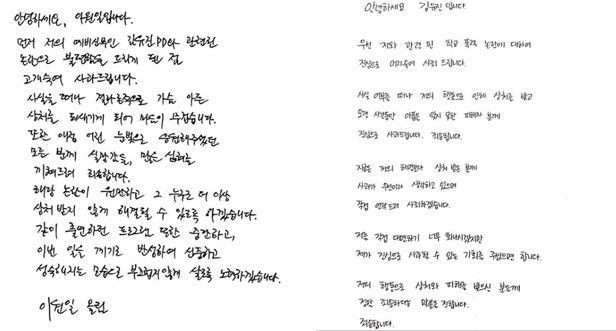 안녕하세요, 이원일입니다.
먼저 저의 예비신부인 김유진PD와 관련된
논란으로 불편함을 드리게 된 점
고개숙여 사과드립니다.
사실을 떠나 결과론적으로 가슴 아픈
상처를 되새기게 되어 다시금 죄송합니다.
또한 애정 어린 눈빛으로 응원해주셨던
모든 분께 실망감을, 많은 심려를
끼쳐드려 죄송합니다.
해당 논란이 원만하고 그 누구도 더 이상
상처 받지 않게 해결될 수 있도록 하겠습니다.
같이 출연하던 프로그램 또한 중단하고,
이번 일을 계기로 반성하여 신중하고
성숙해지는 모습으로 부끄럽지 않게 살도록 노력하겠습니다.
이원일 올림
안녕하세요 김유진 입니다
우선 저와 관련된 학교 폭력 논란에 대하여
진심으로 머리숙여 사죄 드립니다.
사실 여부를 떠나 저의 행동으로 인해 상처를 받고
오랜 시간동안 아픔을 잊지 못한 피해자 분께
진심으로 사과드립니다. 죄송합니다.
지금은 저의 해명보다 상처 받은 분께
사과가 우선이라 생각하고 있으며
직접 연락드려 사과하겠습니다.
저를 직접 대면하기 너무 화나시겠지만
제가 진심으로 사과할 수 있는 기회를 주셨으면 합니다.
저의 행동으로 상처와 피해를 받으신 분들께
정말 죄송하다는 말씀을 전합니다.
죄송합니다.